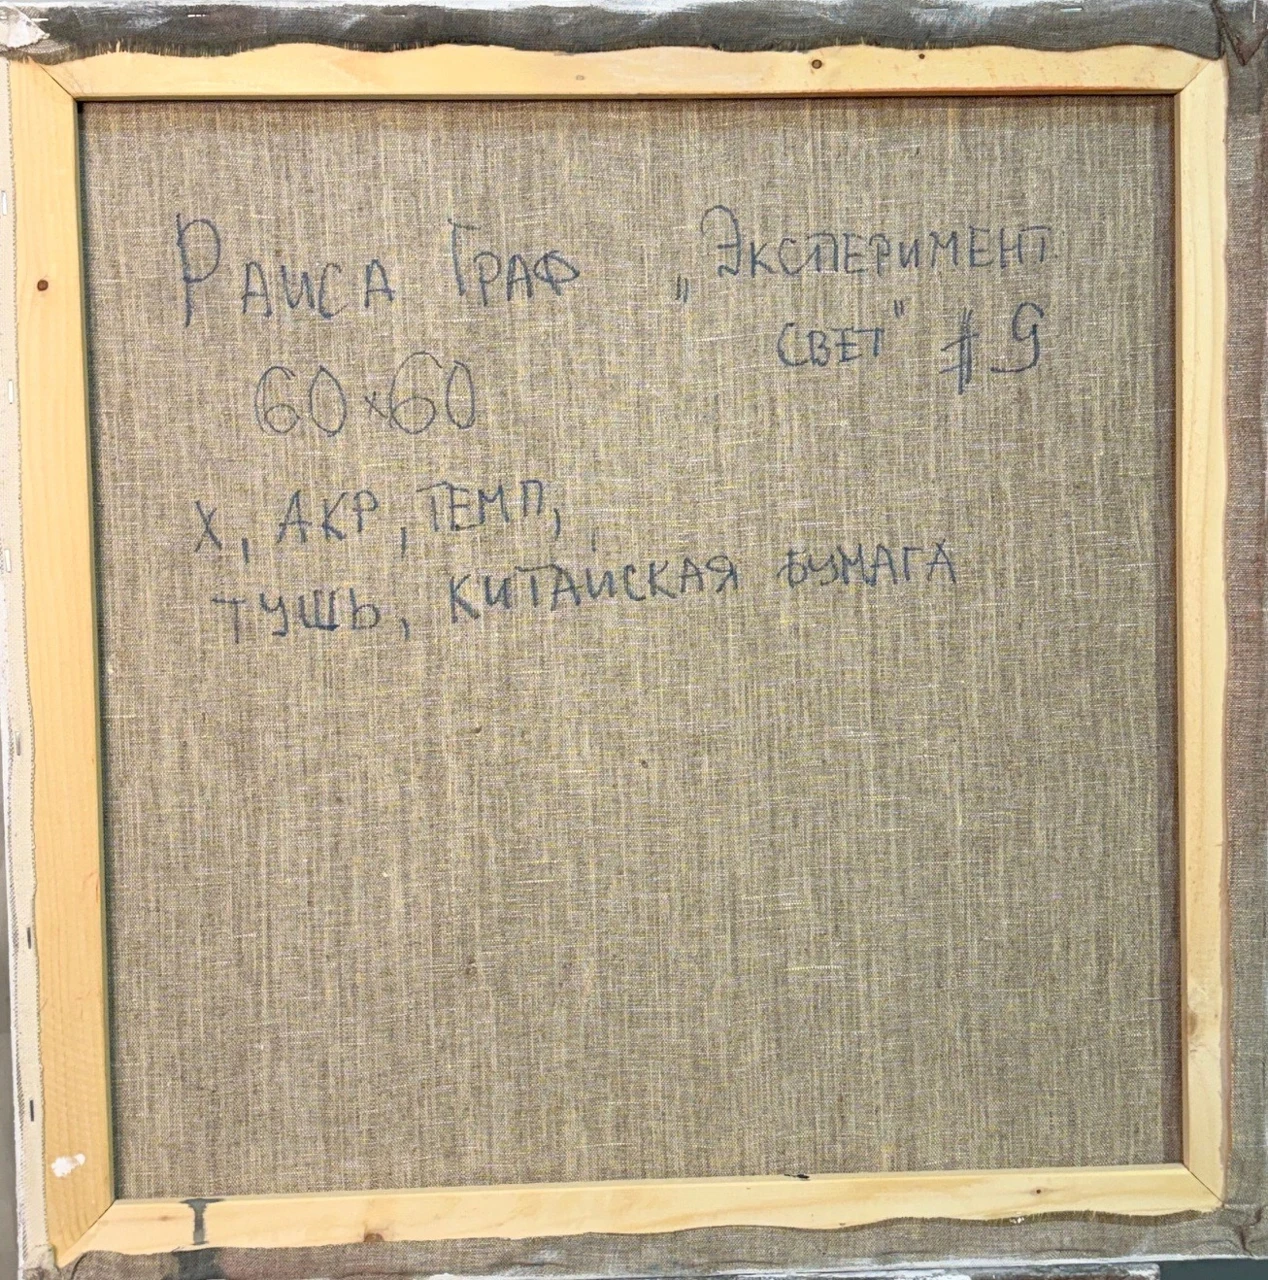 Раиса Граф
„Эксперимент
свет" # 9
60x60
х, акр, темп,,
тушь, китаиская бумага